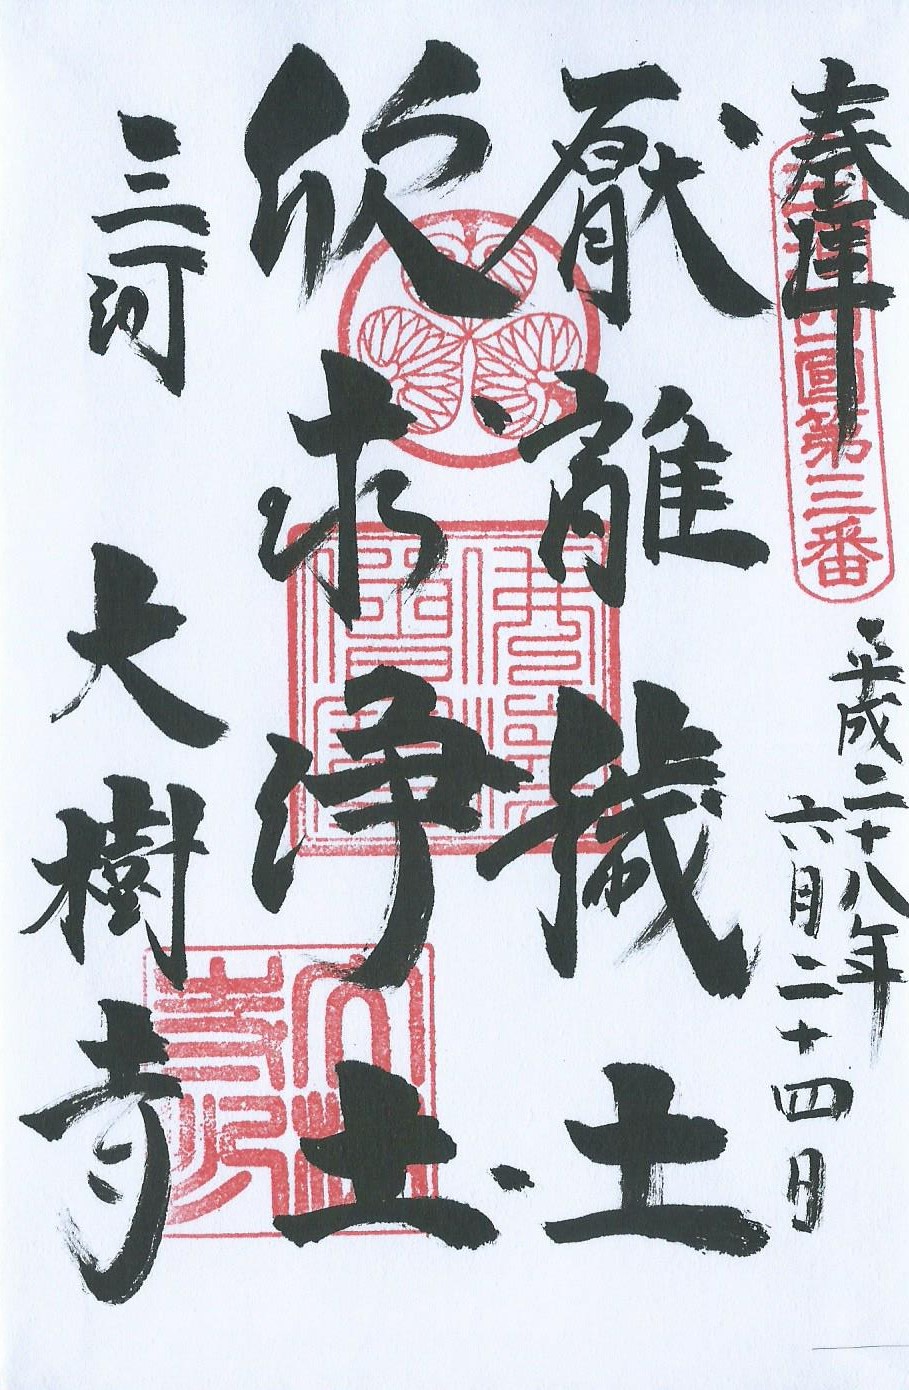 奉拝
國第三番
平成二十八年
六月二十四日
厭離穢土
欣求浄土
三河 大樹寺